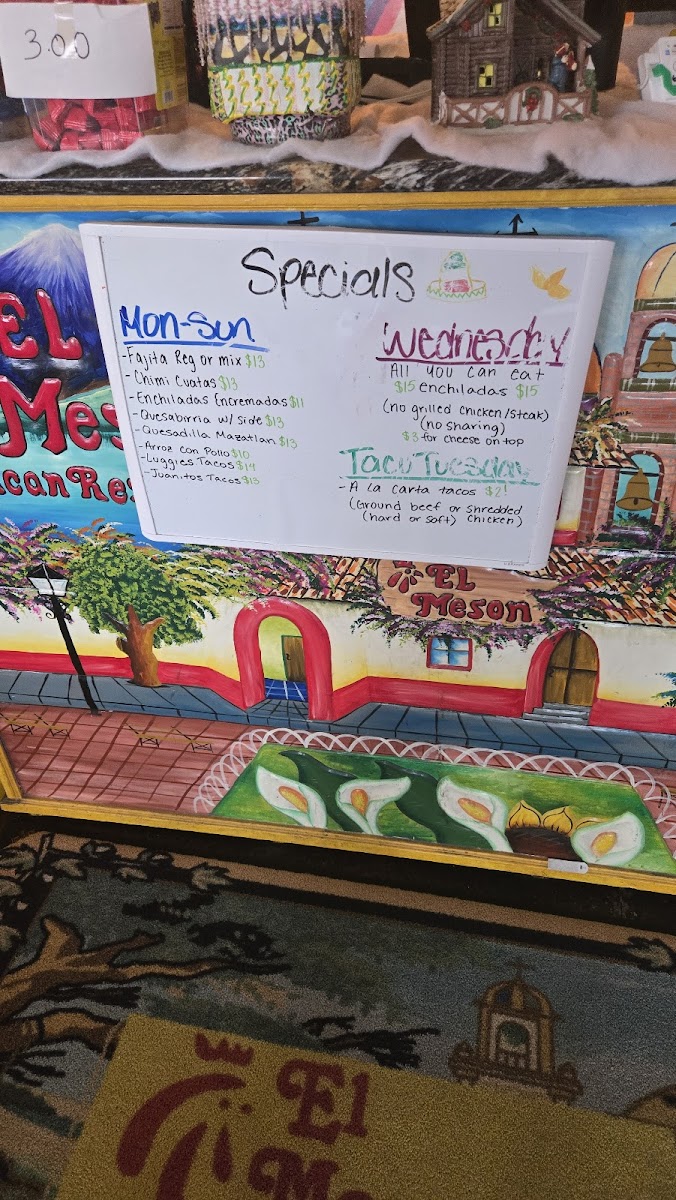 3.00
Specials
Mon-Sun
-Fajita Reg or mix $13
- Chimi Cuatas $13
- Enchiladas Encremadas $11
-Quesabirria w/ side $13
-Quesadilla Mazatlan $13
-Arroz con Pollo $10
-Luggies Tacos $14
-Juanitos Tacos $13
Wednesday
All you can eat
$15 enchiladas $15
(no grilled chicken/steak)
(no sharing)
$3 for cheese on top
Taco Tuesday
- A la carta tacos $2!
(Ground beef or shredded
(hard or soft) chicken)
EL
Mes
ican Res
EL
Meson
El
Me